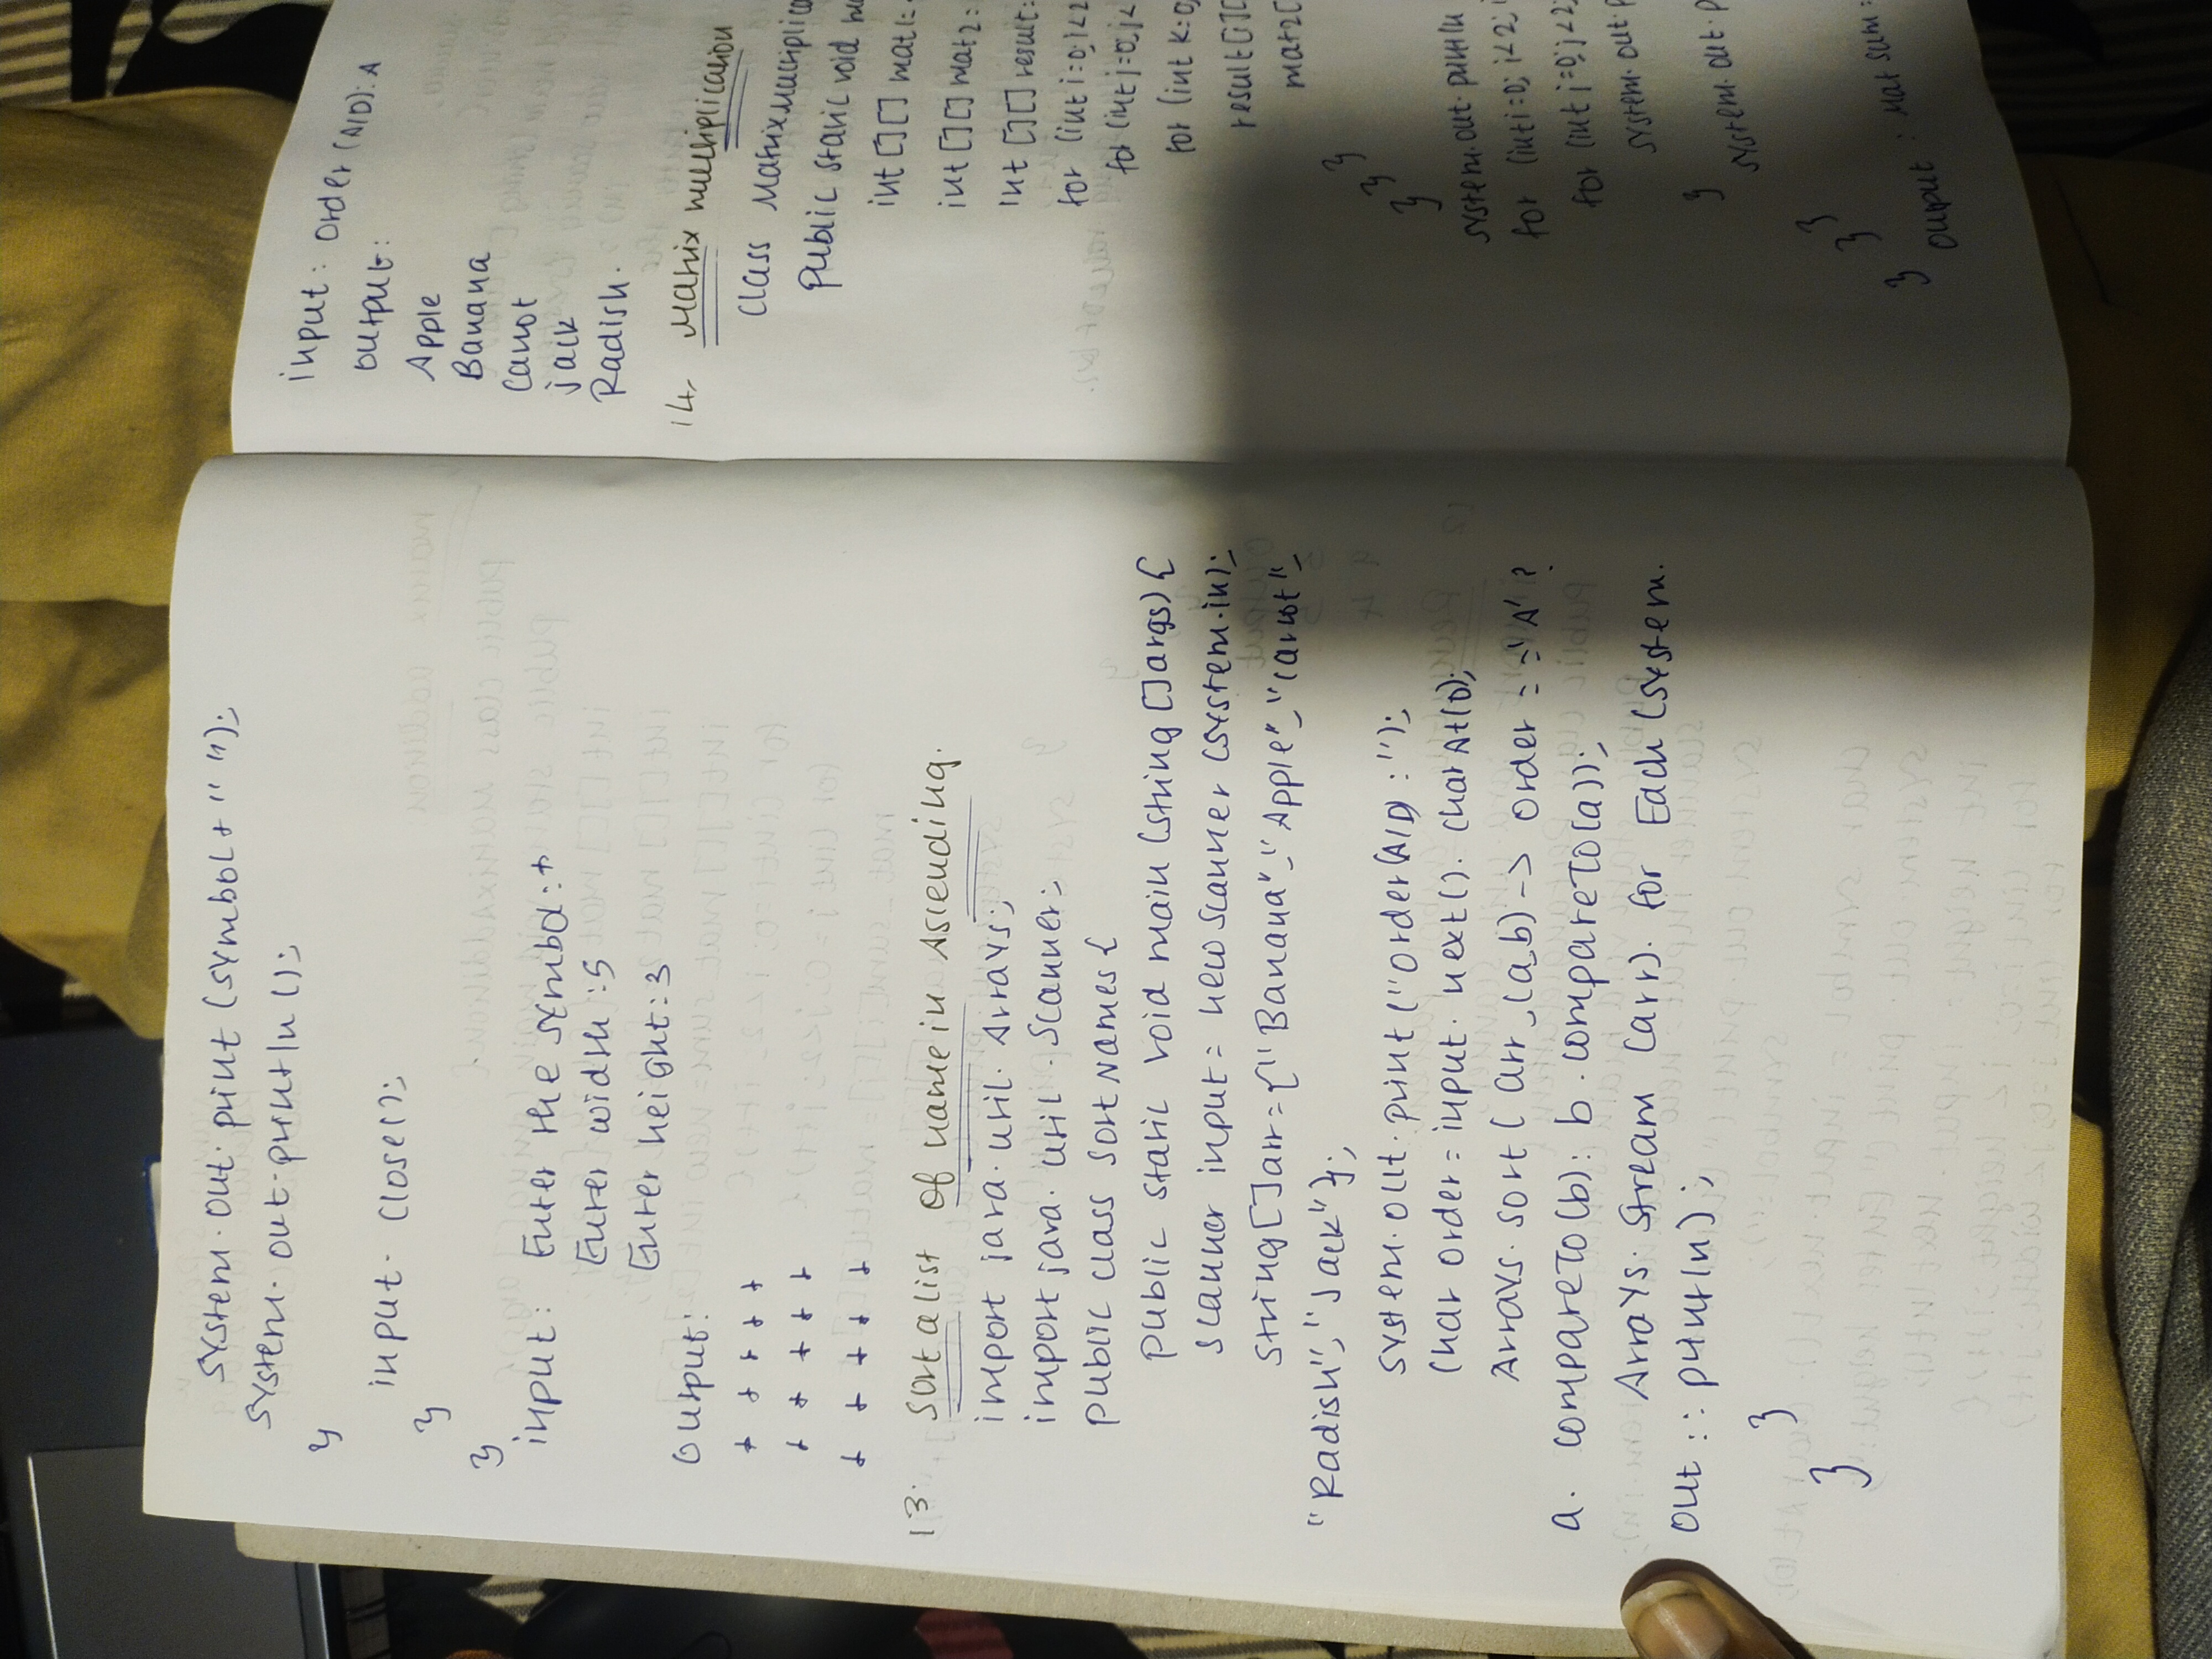 system.out.print (symbol+ " ");
system.out.println();
}
input. close();
}
}
input: Enter the symbol: +
Enter width :5
Enter height:3
output:
+ + + + +
+ + + + +
+ + + + +
13. Sort a list of name in Ascending.
import java.util.Arrays;
import java.util.Scanner;
public class SortNames {
public static void main (string []args) {
scanner input = new scanner (system.in);
string []arr={"Banana","Apple","carrot",
"Radish","Jack"};
system.out.print("order(A/D) : ");
char order = input. next(). charAt(0);
Arrays.sort( arr ,(a,b) -> order == 'A' ?
a. compareTo(b): b.compareTo(a));
Arrays.stream (arr). for Each (system.
out :: println);
}
}
input: order (A/D): A
output:
Apple
Banana
Carrot
jack
Radish.
14. Matrix multiplication
class
public static void
int [][] mat1=
int [][] mat2 =
int [][] result=
for (int i=0; i<2
for (int j=0; j<
for (int k=0;
result[i][
mat2[
}
}
}
system.out.println
for (int i=0; i<2;
for (int j=0; j<2;
system.out.p
}
system.out.p
}
}
}
output : Mat sum =